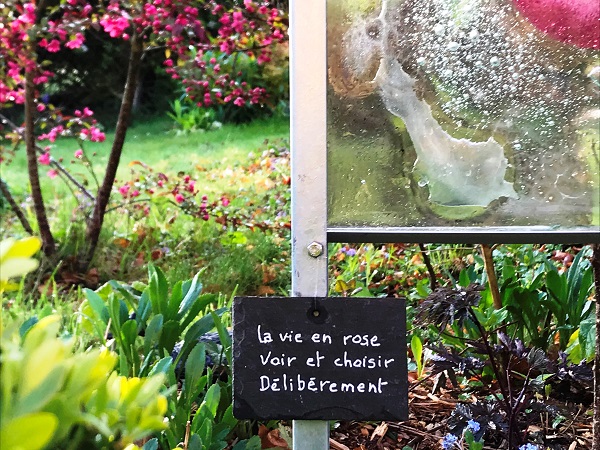 La vie en rose
Voir et choisir
Délibérement